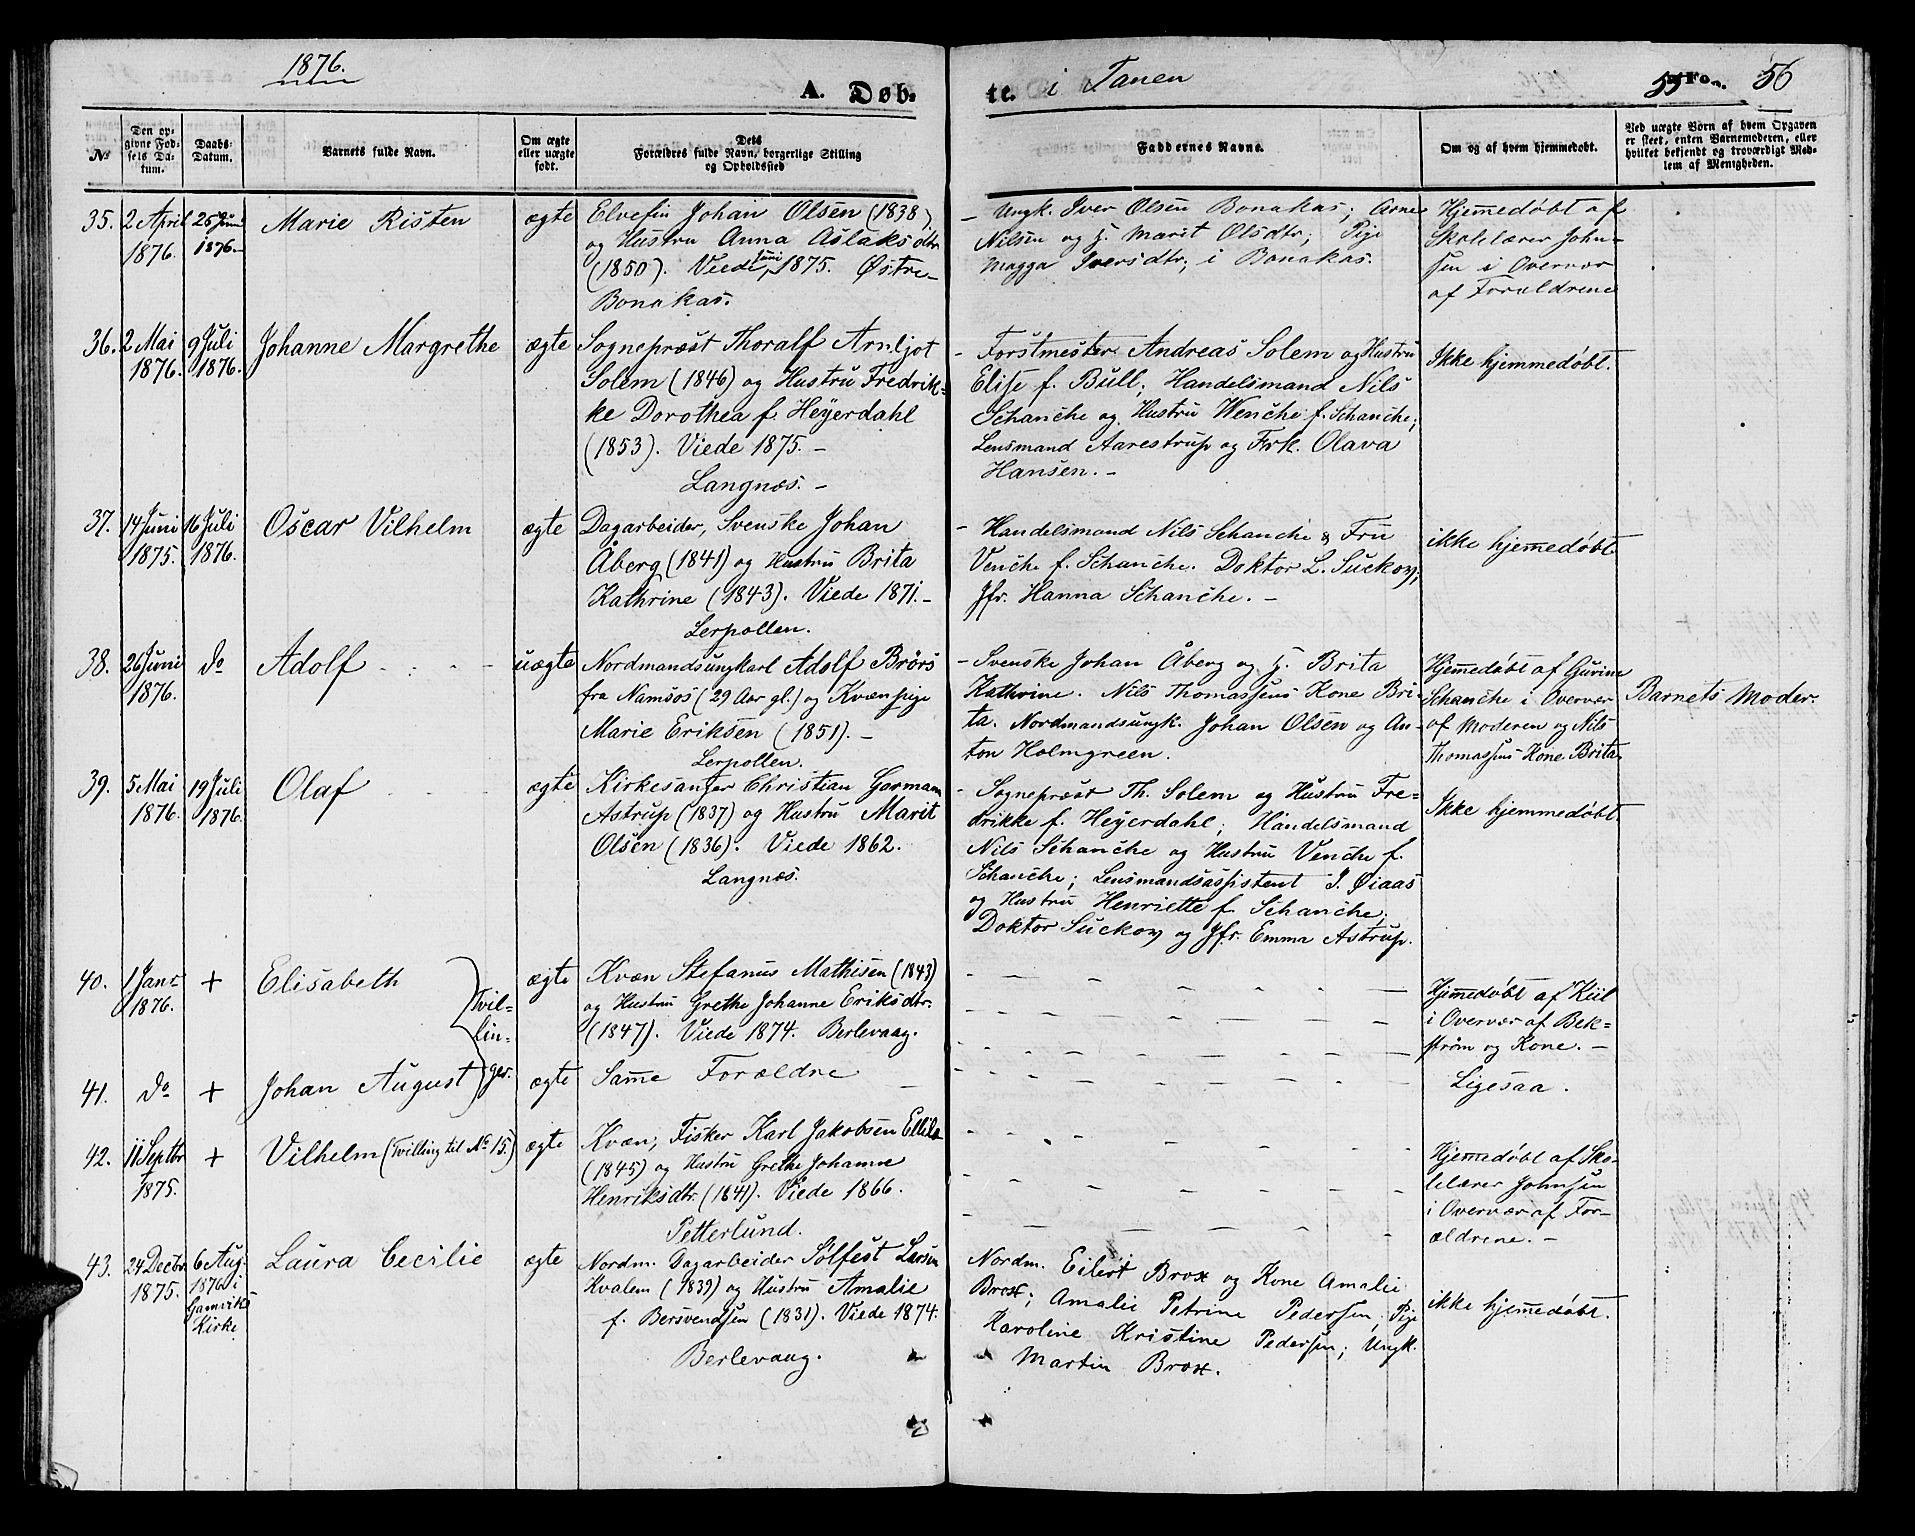 1876.
A. Døb-
te. i Tanen
55 Fo. 56
No
Den op-
givne Fød-
sels Da-
tum.
Daabs-
Datum.
Barnets fulde Navn.
Om ægte
eller uægte
født.
Dets
Forældres fulde Navn, borgerlige Stilling
og Opholdssted
Faddernes Navne.
Om og af hvem hjemmedøbt.
Ved uægte Børn af hvem Opgaven
er skeet, enten Barnemoderen, eller
hvilket bekjendt og troværdigt Med-
lem af Menigheden.
35. 2 April
1876.
25 Juni
1876.
Marie Risten
ægte
Elvefin Johan Olsen (1838)
og Hustru Anna Aslaksdtr
(1850). Viede Juni 1875. Østre-
Bonakas.
- Ungk. Iver Olsen Bonakas; Arne
Nilsen og H. Marit Olsdtr; Pige
Magga Iversdtr, i Bonakas.
Hjemmedøbt af
Skolelærer John-
sen i Overvær
af Forældrene
36. 2 Mai
1876.
9 Juli
1876.
Johanne Margrethe
ægte
Sognepræst Thoralf Arnljot
Solem (1846) og Hustru Fredrik-
ke Dorothea f. Heyerdahl
(1853). Viede 1875. -
Langnæs. -
- Forstmester Andreas Solem og Hustru
Elise f. Bull; Handelsmand Nils
Schanche og Hustru Wenche f. Schanche;
Lensmand Aarestrup og Frk. Olava
Hansen. -
Ikke hjemmedøbt.
37. 14 Juni
1875.
16 Juli
1876.
Oscar Vilhelm
ægte
Dagarbeider, Svenske Johan
Åberg (1841) og Hustru Brita
Kathrine (1843). Viede 1871. -
Lerpollen.
- Handelsmand Nils Schanche & Fru
Venche f. Schanche. Doktor L. Suckow;
Jfr. Hanna Schanche. -
ikke hjem̄edøbt
38. 26 Juni
1876.
do
Adolf
uægte
Nordmandsungkarl Adolf Brørs
fra Namsos (29 Aar gl.) og Kvænpige
Marie Eriksen (1851). -
Lerpollen.
- Svenske Johan Åberg og H. Brita
Kathrine. Nils Thomassens Kone Bri-
ta. Nordmandsungk. Johan Olsen og An-
ton Holmgreen.
Hjem̄edøbt af Guvine
Schanche i Overvær
af Moderen og Nils
Thomassens Kone Brita
Barnets Moder.
39. 5 Mai
1876.
19 Juli
1876.
Olaf
ægte
Kirkesanger Christian Gormann
Astrup (1837) og Hustru Marit
Olsen (1836). Viede 1862.
Langnæs.
- Sognepræst Th. Solem og Hustru Fre-
drikke f. Heyerdahl; Handelsmand
Nils Schanche og Hustru Venche f.
Schanche; Lensmandsassistent J. Øiaas
og Hustru Henriette f. Schanche;
Doktor Suckow og Jfr. Emma Astrup.
Ikke hjemmedøbt.
40. 1 Janr
1876.
+
Elisabeth
Tvil-
lin-
ger.
ægte
Kvæn Stefanus Mathisen (1843)
og Hustru Grethe Johanne Eriksdtr.
(1847). Viede 1874. Berlevaag.
Hjem̄edøbt af Kiil
i Overvær af Bek-
strøm og Kone. -
41. do
+
Johan August
ægte
Sam̄e Forældre
Ligesaa.
42. 11 Septbr
1875.
+
Vilhelm (Tvilling til No 15.)
ægte
Kvæn, Fisker Karl Jakobsen Ellila
(1845) og Hustru Grethe Johanne
Henriksdtr. (1841). Viede 1866.
Petterlund.
Hjem̄edøbt af Sko-
lelærer Johnsen
i Overvær af For-
ældrene. -
43. 24 Decbr
1875.
6 Aug.
1876 i
Gamviks
Kirke
Laura Cecilie
ægte
Nordm. Dagarbeider Sølfest Larsen
Kvalem (1839) og Hustru Amalie
f. Bersvendsen (1831). Viede 1874.
Berlevaag.
Nordm. Eilert Brox og Kone Amalie
Brox; Amalie Petrine Pedersen; Pige
Karoline Kristine Pedersen; Ungk.
Martin Brox.
ikke hjem̄edøbt.